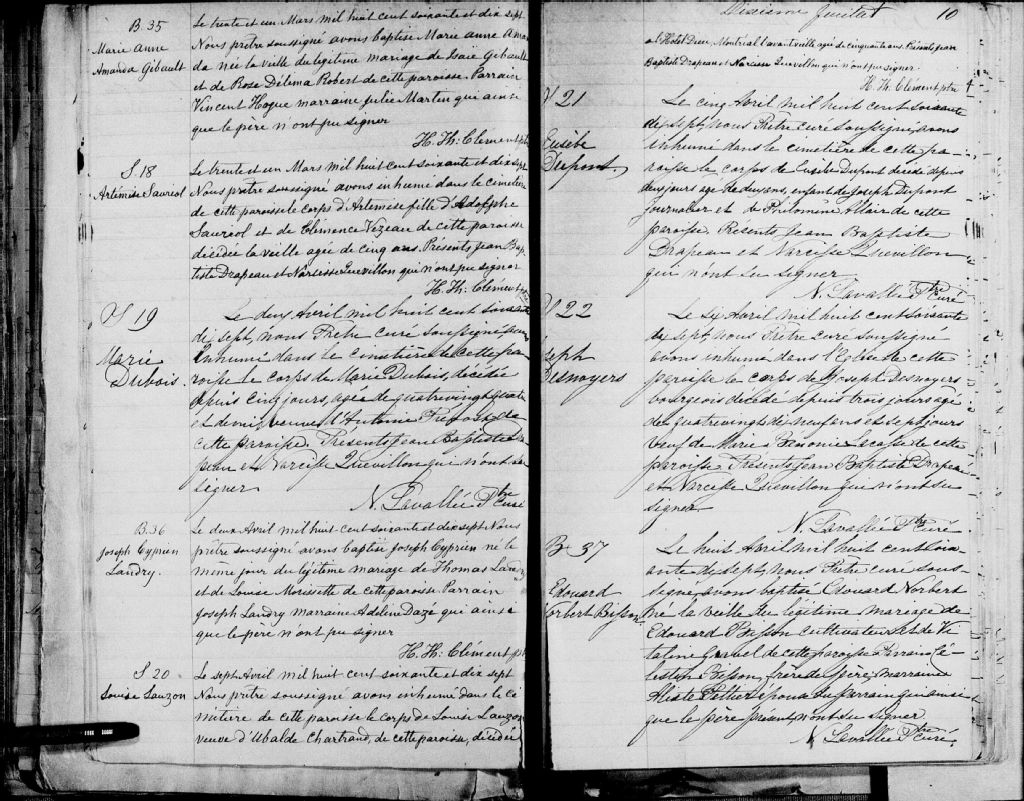 B. 35
Marie Anne
Amanda Gibault
Le trente et un Mars mil huit cent soixante et dix sept
Nous prêtre soussigné avons baptisé Marie Anne Aman
da née la veille du légitime mariage de Isaïe Gibault
et de Rose Délima Robert de cette paroisse. Parrain
Vincent Hogue marraine Julie Martin qui ainsi
que le père n'ont pu signer
H. Th: Clément ptre
S. 18
Artémise Sauriol
Le trente et un Mars mil huit cent soixante et dix sept
Nous prêtre soussigné avons inhumé dans le cimetière
de cette paroisse le corps d'Artémise fille d'Adolphe
Sauriol et de Clémence Vezeau de cette paroisse
décédée la veille agée de cinq ans. Présents Jean Bap
tiste Drapeau et Narcisse Quevillon qui n'ont pu signer
H. Th: Clément ptre
S 19
Marie
Dubois
Le deux Avril mil huit cent soixante
dix sept, nous Prêtre curé soussigné, avons
inhumé dans le cimetière de cette pa
roisse le corps de Marie Dubois, décédée
depuis cinq jours, agée de quatrevingt quatre
et demi, veuve d'Antoine Prévost de
cette paroisse. Présents Jean Baptiste Dra
peau et Narcisse Quevillon qui n'ont su
signer
N. Lavallée Ptre Curé
B. 36
Joseph Cyprien
Landry.
Le deux Avril mil huit cent soixante et dix sept Nous
prêtre soussigné avons baptisé Joseph Cyprien né le
même jour du légitime mariage de Thomas Landry
et de Louise Morissette de cette paroisse Parrain
Joseph Landry marraine Adeline Dazé qui ainsi
que le père n'ont pu signer
H. Th: Clément ptre
S 20
Louise Lauzon
Le sept Avril mil huit cent soixante et dix sept
Nous prêtre soussigné avons inhumé dans le ci
metière de cette paroisse le corps de Louise Lauzon
veuve d'Ubalde Chartrand, de cette paroisse, décédée
Dixième feuillet 10
à l'Hotel Dieu, Montréal l'avant veille, agée de cinquante ans. Présents Jean
Baptiste Drapeau et Narcisse Quevillon qui n'ont pu signer.
H. Th. Clément ptre
S 21
Eusèbe
Dupont
Le cinq Avril mil huit cent soixante
dix sept, nous Prêtre curé soussigné, avons
inhumé dans le cimetière de cette pa-
roisse le corps de Eusèbe Dupont décédé depuis
deux jours agé de deux ans, enfant de Joseph Dupont
journalier et de Philomène Allair de cette
paroisse. Présents Jean Baptiste
Drapeau et Narcisse Quevillon
qui n'ont su signer
N. Lavallée Ptre Curé
S 22
seph
Desnoyers
Le six Avril mil huit cent soixante
dix sept, nous Prêtre curé soussigné
avons inhumé dans l'Eglise de cette
paroisse le corps de Joseph Desnoyers
bourgeois décédé depuis trois jours agé
de quatrevingt dix neuf ans et sept jours
veuf de Marie de cette
paroisse. Présents Jean Baptiste Drapeau
et Narcisse Quevillon qui n'ont su
signer.
N. Lavallée Ptre Curé.
B 37
Edouard
orbert Bisson
Le huit Avril mil huit cent soix-
ante dix sept, nous Prêtre curé sous-
signé, avons baptisé Edouard Norbert
né la veille du légitime mariage de
Edouard Bisson cultivateur et de Vi
taline Gravel de cette paroisse. Parrain Cé-
lestin Bisson, frère du père, marraine
Pelletier épouse du parrain qui ainsi
que le père présent, n'ont su signer
N. Lavallée Ptre curé.